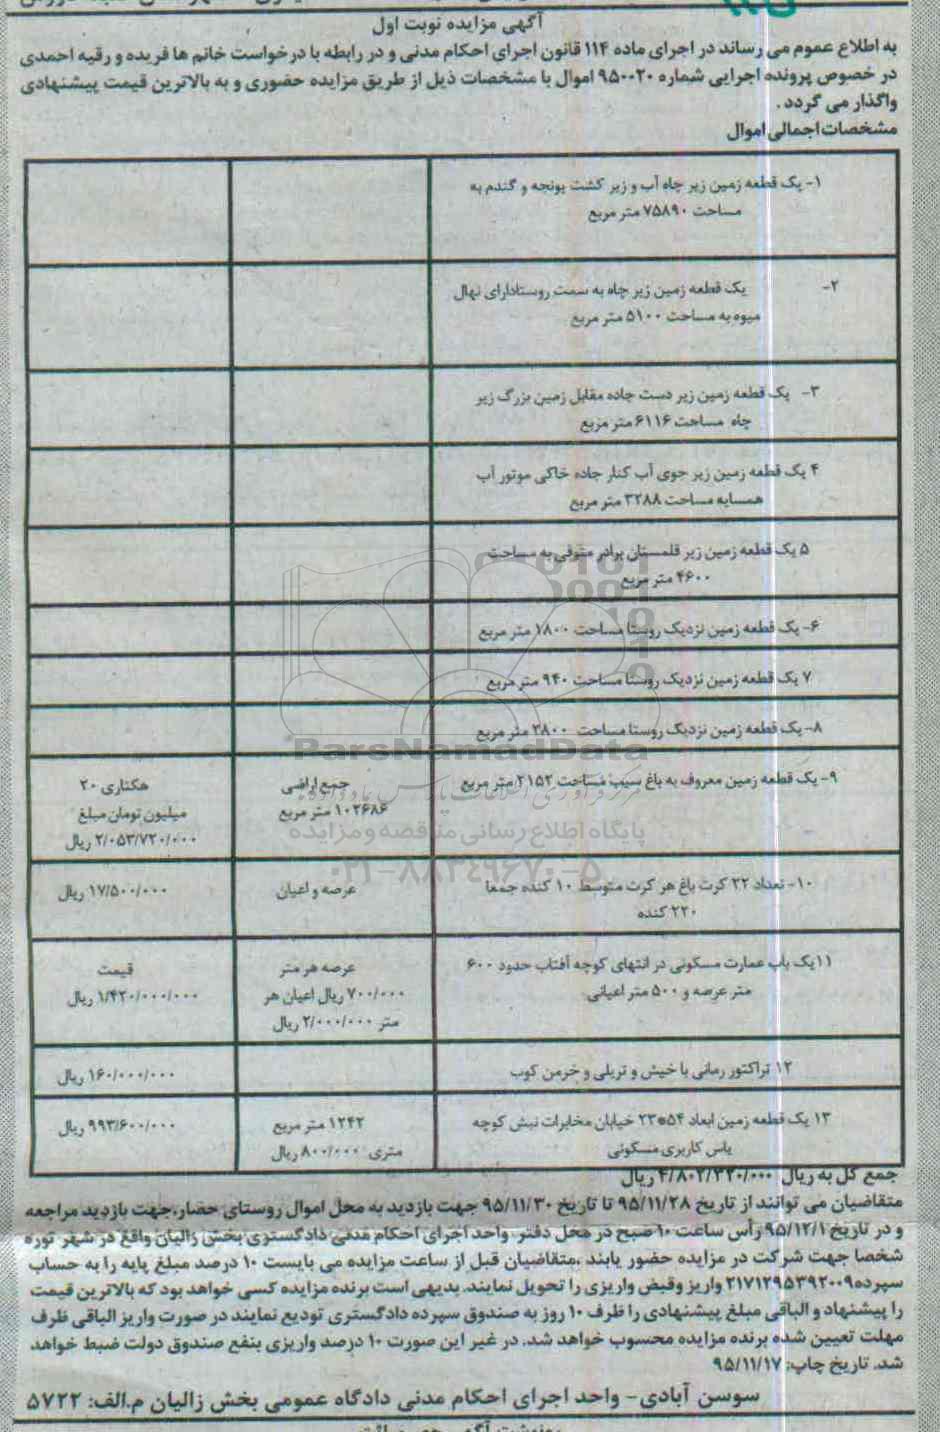 آگهی مزایده نوبت اول
به اطلاع عموم می رساند در اجرای ماده ۱۱۴ قانون اجرای احکام مدنی و در رابطه با درخواست خانم ها فریده و رقیه احمدی
در خصوص پرونده اجرایی شماره ۹۵۰۰۲۰ اموال با مشخصات ذیل از طریق مزایده حضوری و به بالاترین قیمت پیشنهادی
واگذار می گردد .
مشخصات اجمالی اموال
۱- یک قطعه زمین زیر چاه آب و زیر کشت یونجه و گندم به
مساحت ۷۵۸۹۰ متر مربع
۲- یک قطعه زمین زیر چاه به سمت روستادارای نهال
میوه به مساحت ۵۱۰۰ متر مربع
۳- یک قطعه زمین زیر دست جاده مقابل زمین بزرگ زیر
چاه مساحت ۶۱۱۶ متر مربع
۴ یک قطعه زمین زیر جوی آب کنار جاده خاکی موتور آب
همسایه مساحت ۳۲۸۸ متر مربع
۵ یک قطعه زمین زیر قلمستان برادر متوفی به مساحت
۴۶۰۰ متر مربع
۶- یک قطعه زمین نزدیک روستا مساحت ۱۸۰۰ متر مربع
۷ یک قطعه زمین نزدیک روستا مساحت ۹۴۰ متر مربع
۸- یک قطعه زمین نزدیک روستا مساحت ۲۸۰۰ متر مربع
ParsNamadData
۹- یک قطعه زمین معروف به باغ سیب مساحت ۲۱۵۲ متر مربع جمع اراضی هکتاری ۲۰
۱۰۲۶۸۶ متر مربع میلیون تومان مبلغ
۲/۰۵۳/۷۲۰/۰۰۰ ریال
پایگاه اطلاع رسانی مناقصه و مزایده
۰۲۱-۸۸۳۴۹۶۷۰-۵
۱۰- تعداد ۲۲ کرت باغ هر کرت متوسط ۱۰ کنده جمعا عرصه و اعیان ۱۷/۵۰۰/۰۰۰ ریال
۲۲۰ کنده
۱۱یک باب عمارت مسکونی در انتهای کوچه آفتاب حدود ۶۰۰ عرصه هر متر قیمت
متر عرصه و ۵۰۰ متر اعیانی ۷۰۰/۰۰۰ ریال اعیان هر ۱/۴۲۰/۰۰۰/۰۰۰ ریال
متر ۲/۰۰۰/۰۰۰ ریال
۱۲ تراکتور رمانی با خیش و تریلی و خرمن کوب ۱۶۰/۰۰۰/۰۰۰ ریال
۱۳ یک قطعه زمین ابعاد ۵۴*۲۳ خیابان مخابرات نبش کوچه ۱۲۴۲ متر مربع ۹۹۳/۶۰۰/۰۰۰ ریال
یاس کاربری مسکونی متری ۸۰۰/۰۰۰ ریال
جمع کل به ریال ۴/۸۰۲/۳۲۰/۰۰۰ ریال
متقاضیان می توانند از تاریخ ۹۵/۱۱/۲۸ تا تاریخ ۹۵/۱۱/۳۰ جهت بازدید به محل اموال روستای حضار،جهت بازدید مراجعه
و در تاریخ ۹۵/۱۲/۱ رأس ساعت ۱۰ صبح در محل دفتر واحد اجرای احکام مدنی دادگستری بخش زالیان واقع در شهر توره
شخصا جهت شرکت در مزایده حضور یابند ،متقاضیان قبل از ساعت مزایده می بایست ۱۰ درصد مبلغ پایه را به حساب
سپرده۲۱۷۱۲۹۵۳۹۲۰۰۹ واریز وقبض واریزی را تحویل نمایند. بدیهی است برنده مزایده کسی خواهد بود که بالاترین قیمت
را پیشنهاد و الباقی مبلغ پیشنهادی را ظرف ۱۰ روز به صندوق سپرده دادگستری تودیع نمایند در صورت واریز الباقی ظرف
مهلت تعیین شده برنده مزایده محسوب خواهد شد. در غیر این صورت ۱۰ درصد واریزی بنفع صندوق دولت ضبط خواهد
شد. تاریخ چاپ: ۹۵/۱۱/۱۷
سوسن آبادی- واحد اجرای احکام مدنی دادگاه عمومی بخش زالیان م.الف: ۵۷۲۲